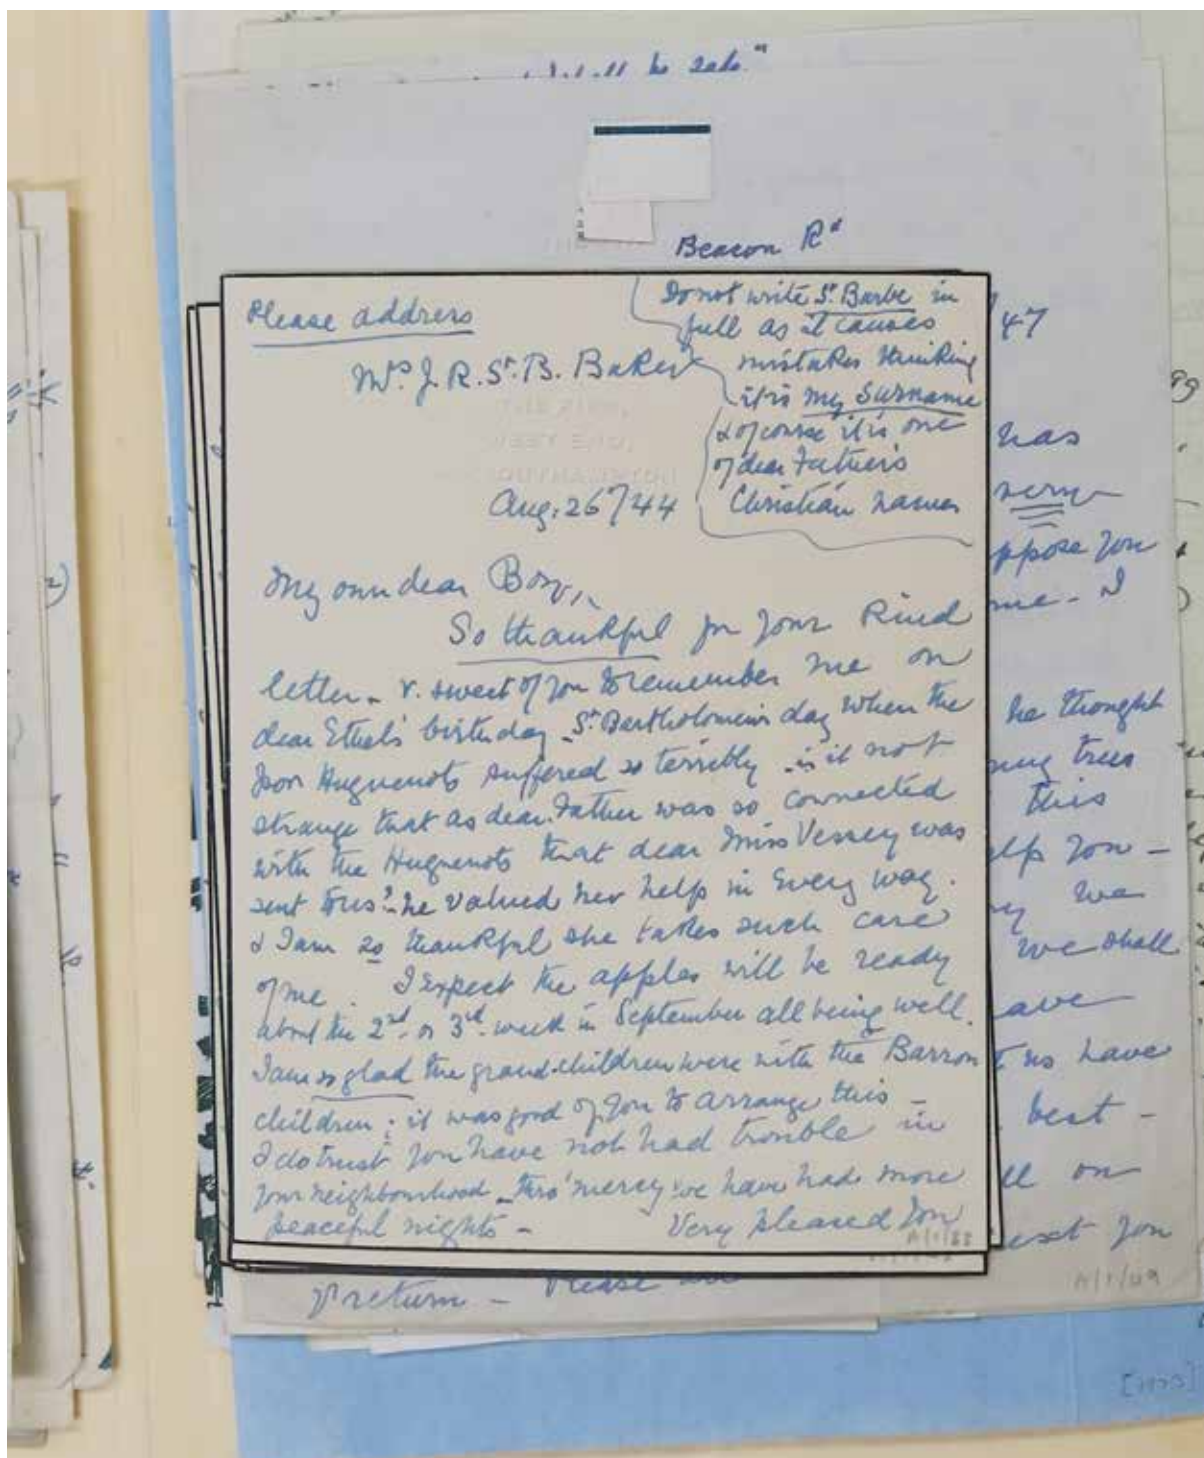 be sale."
Beacon Rd
Please address
Mrs J. R. St. B. Baker
Do not write St. Barbe in
full as it causes
mistakes thinking
it is my Surname
& of course it is one
of dear Father's
Christian names
Aug: 26/44
My own dear Boy,
So thankful for your kind
letter - v. sweet of you to remember me on
dear Ethel's birthday - St Bartholomew's day when the
poor Huguenots suffered so terribly - is it not
strange that as dear Father was so connected
with the Huguenots that dear Miss Vessey was
sent to us? - he valued her help in every way.
& I am so thankful she takes such care
of me. I expect the apples will be ready
about the 2nd or 3rd week in September all being well.
I am so glad the grand-children were with the Barron
children; it was good of you to arrange this -
I do trust you have not had trouble in
your neighbourhood - thro' mercy we have had more
peaceful nights - Very pleased you
A/1/88
/47
has
very
ppose you
me - I
he thought
ing trees
this
elp you -
we
we shall
ave
us have
best -
ll on
next you
return - Please
A/1/49